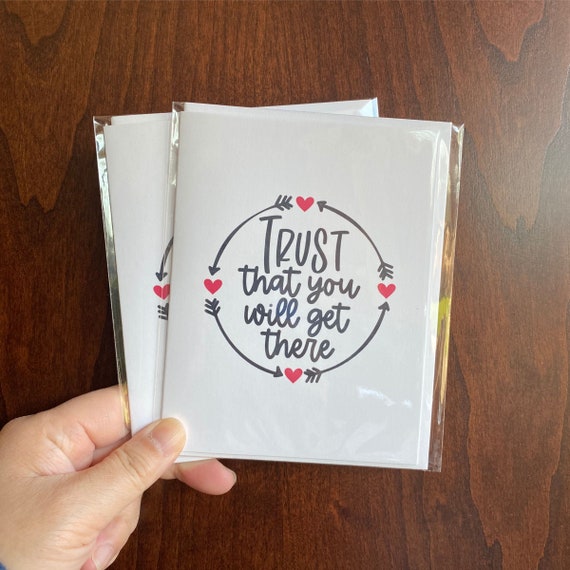 TRUST
that you
will get
there